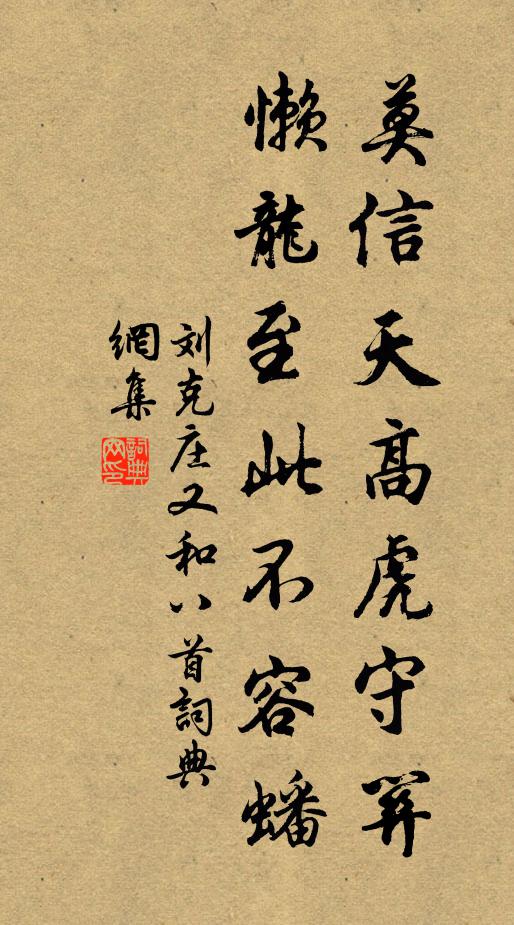 莫信天高虎守關
懶龍至此不容蟠
刘克庄又和八首詞典
網集
詞典
网印